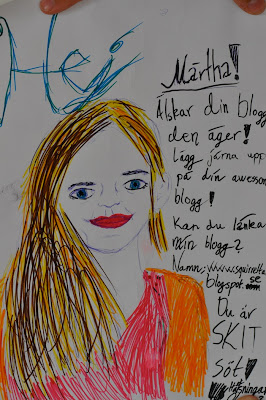 Hej
Märtha!
Älskar din blogg
den äger!
Lägg järna upp
på din awesom
blogg!
Kan du länka
min blogg?
Namn: www.squirrette
blogspot. se
Du är
SKIT
söt!